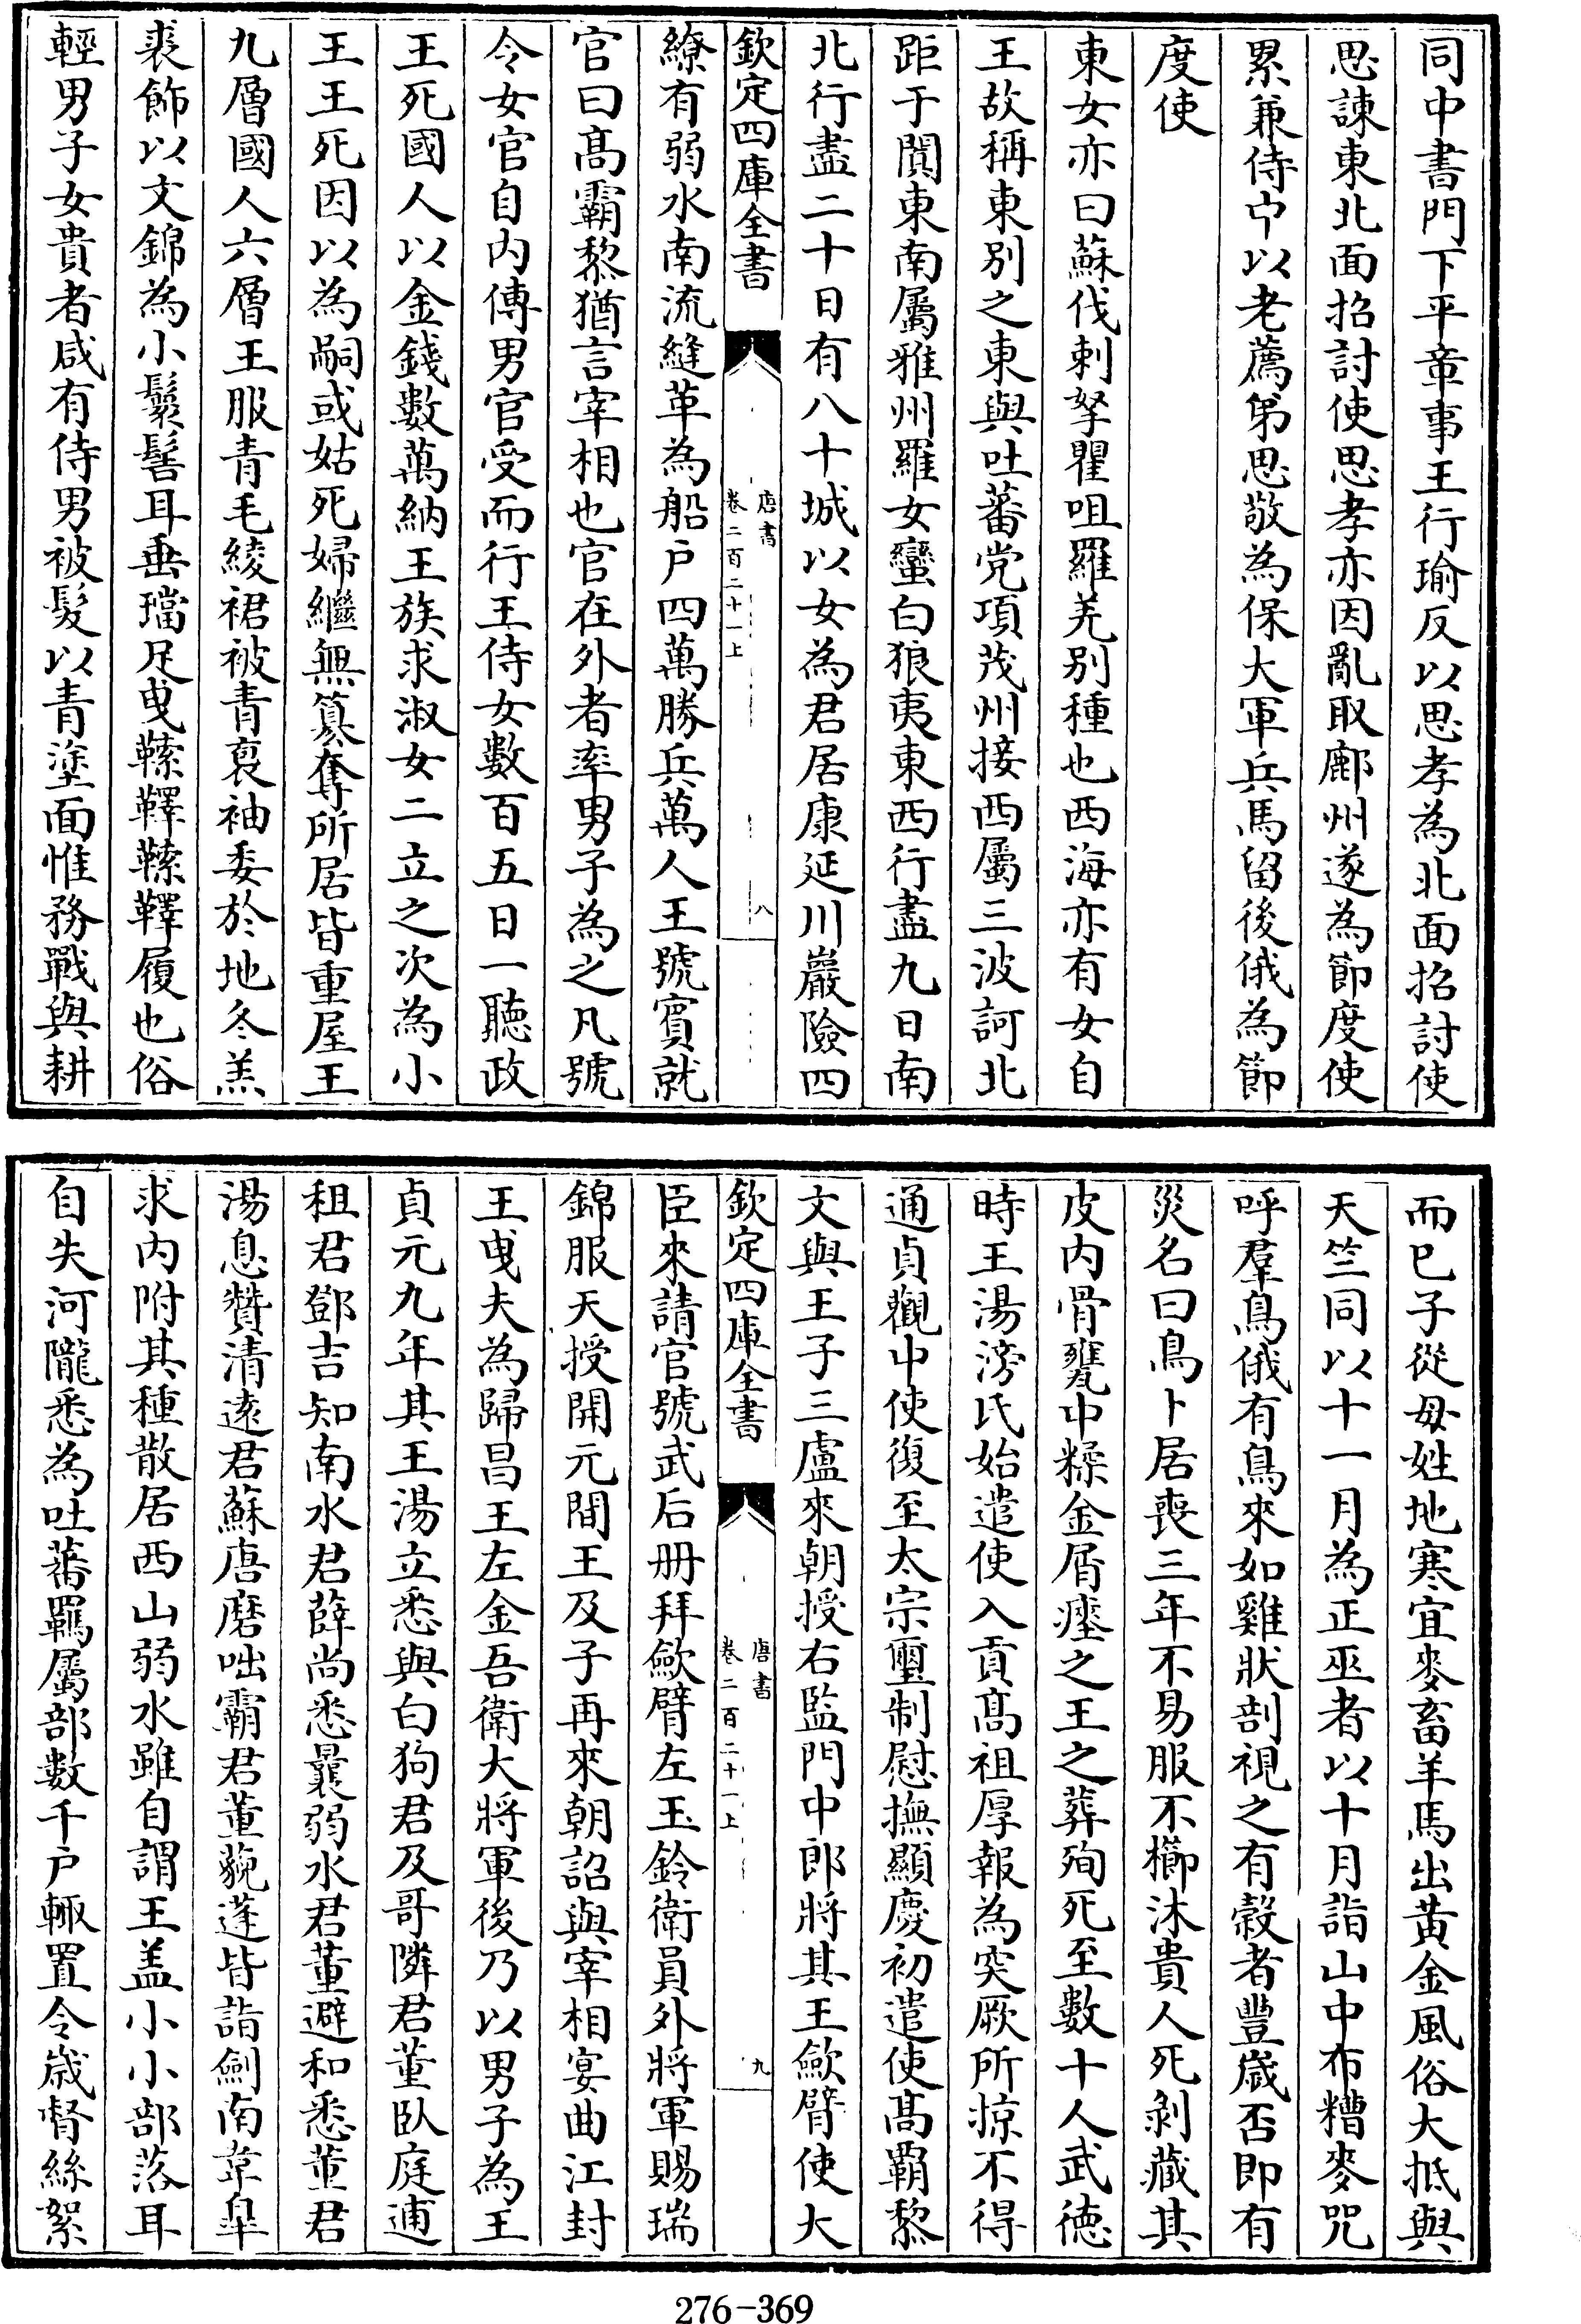 同中書門下平章事王行瑜反以思孝為北面招討使
思諫東北面招討使思孝亦因亂取鄜州遂為節度使
累兼侍中以老薦弟思敬為保大軍兵馬留後俄為節
度使
東女亦曰蘇伐剌拏瞿咀羅羌别種也西海亦有女自
王故稱東别之東與吐蕃党項茂州接西屬三波訶北
距于闐東南屬雅州羅女蠻白狼夷東西行盡九日南
北行盡二十日有八十城以女為君居康延川巖險四
欽定四庫全書
唐書
卷二百二十一上
八
繚有弱水南流縫革為船户四萬勝兵萬人王號賓就
官曰髙霸黎猶言宰相也官在外者率男子為之凡號
令女官自内傳男官受而行王侍女數百五日一聽政
王死國人以金錢數萬納王族求淑女二立之次為小
王王死因以為嗣或姑死婦繼無簒奪所居皆重屋王
九層國人六層王服青毛綾裙被青裒袖委於地冬羔
裘飾以文錦為小鬟髻耳垂璫足曵䩱鞸䩱鞸履也俗
輕男子女貴者咸有侍男被髮以青塗面惟務戰與耕
而已子從母姓地寒宜麥畜羊馬出黄金風俗大抵與
天竺同以十一月為正巫者以十月詣山中布糟麥咒
呼羣鳥俄有鳥來如雞狀剖視之有榖者豐歲否即有
災名曰鳥卜居喪三年不易服不櫛沐貴人死剥藏其
皮内骨甕中糅金屑瘞之王之葬殉死至數十人武徳
時王湯滂氏始遣使入貢髙祖厚報為突厥所掠不得
通貞觀中使復至太宗璽制慰撫顯慶初遣使髙霸黎
文與王子三盧來朝授右監門中郎將其王歛臂使大
欽定四庫全書
唐書
卷二百二十一上
九
臣來請官號武后册拜歛臂左玉鈐衛員外將軍賜瑞
錦服天授開元間王及子再來朝詔與宰相宴曲江封
王曵夫為歸昌王左金吾衛大將軍後乃以男子為王
貞元九年其王湯立悉與白狗君及哥隣君董卧庭逋
租君鄧吉知南水君薛尚悉曩弱水君董避和悉董君
湯息贊清逺君蘇唐磨咄霸君董藐蓬皆詣劒南韋臯
求内附其種散居西山弱水雖自謂王盖小小部落耳
自失河隴悉為吐蕃羈屬部數千户輙置令歲督絲絮
276-369